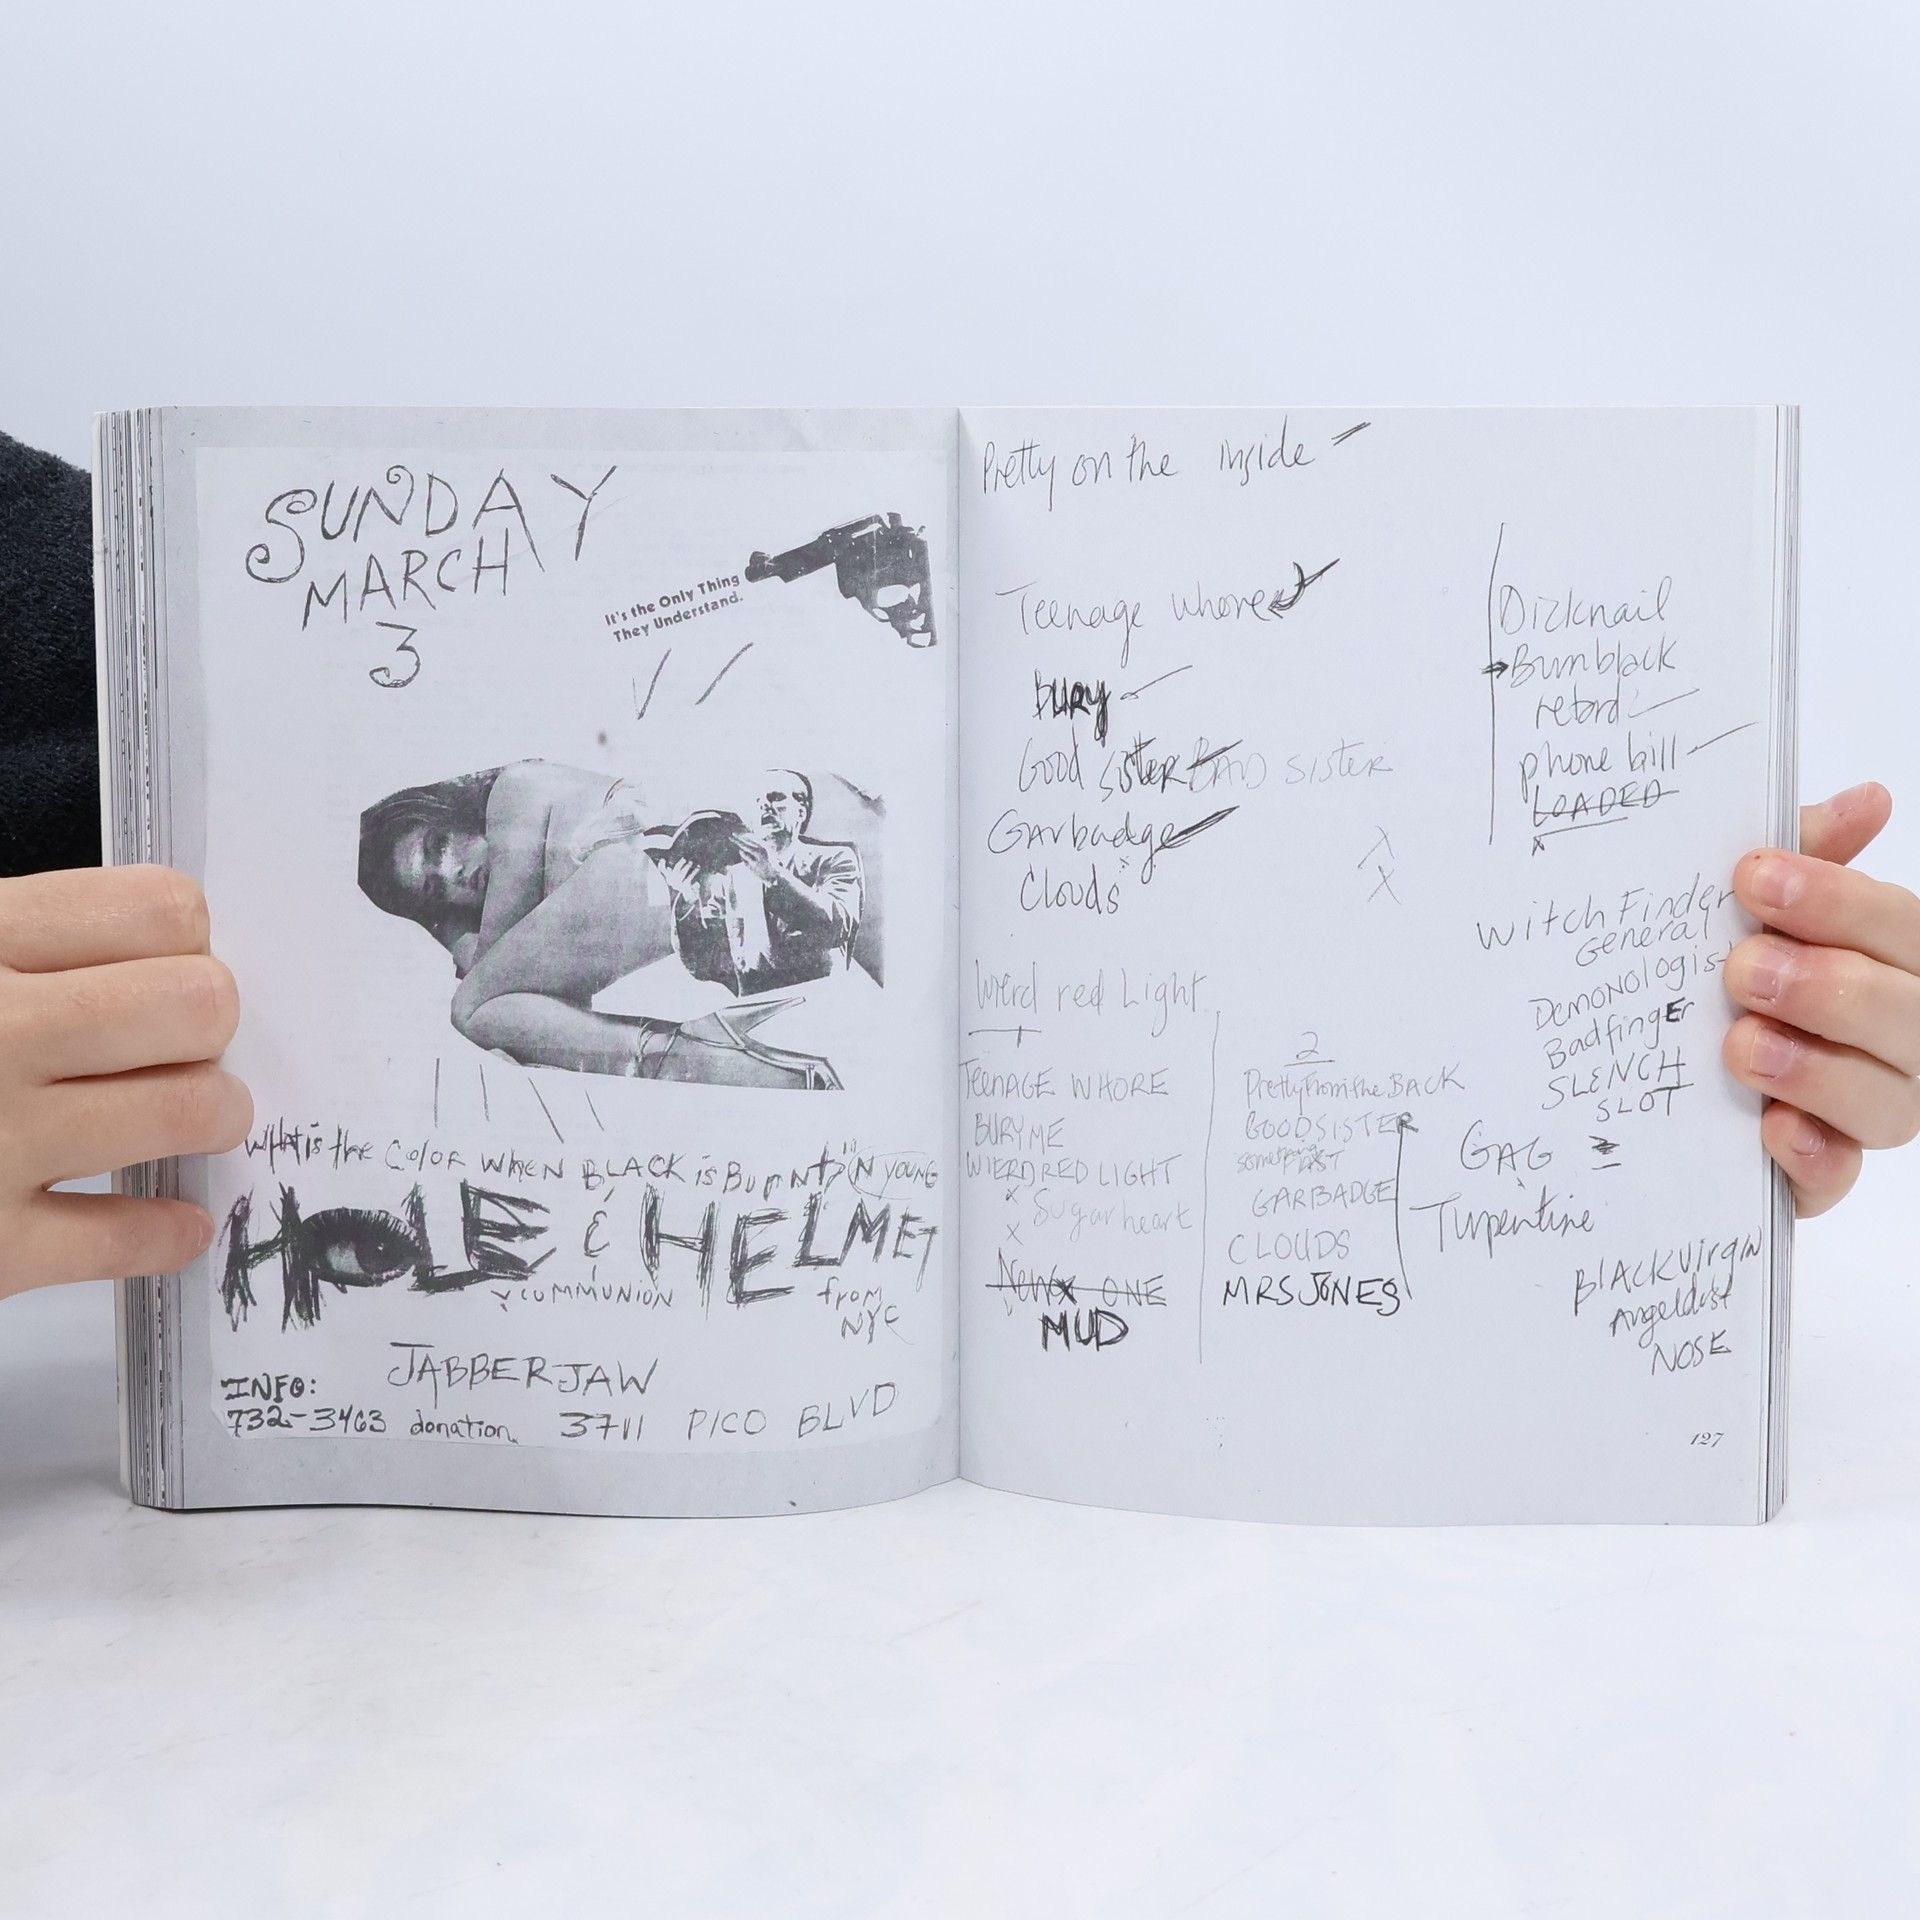 SUNDAY
MARCH
3
It's the Only Thing
They Understand.
WHAT is the COLOR WHEN BLACK is BURNT? IN YOUNG
HOLE & HELMET
COMMUNION
from
NYC
JABBERJAW
INFO:
732-3463 donation 3711 PICO BLVD
Pretty on the inside
Teenage whore
BURY
Good sister BAD SISTER
Garbadge
Clouds
Dicknail
Burnblack
retard
phone bill
LOADED
Witch Finder
General
Demonologist
Badfinger
SLENCH
SLOT
Wierd red Light
TEENAGE WHORE
BURY ME
WIERD RED LIGHT
Sugarheart
New ONE
MUD
2
Pretty From the BACK
GOODSISTER
something
GARBADGE
CLOUDS
MRS JONES
GAG
Turpentine
BLACK Virgin
Angeldust
NOSE
127